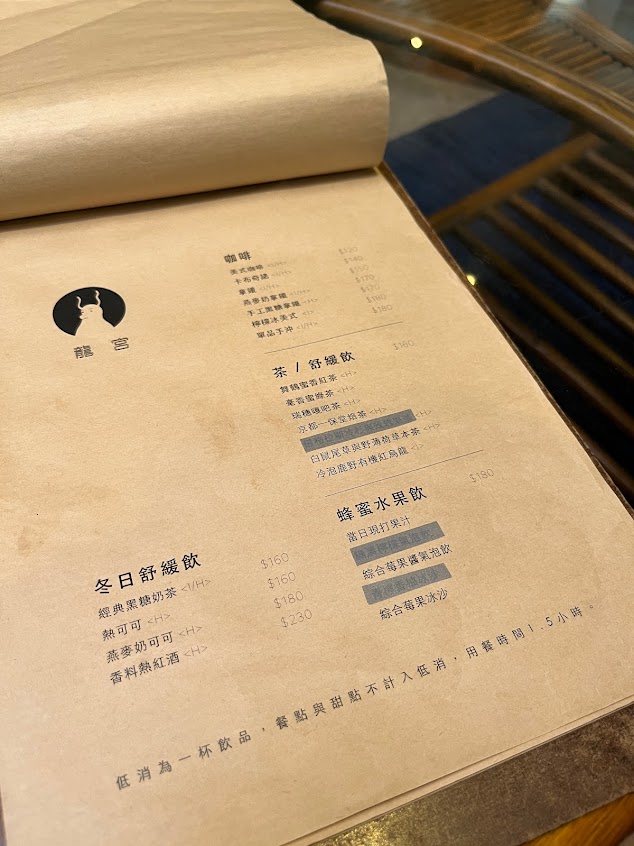 龍宮
咖啡
美式咖啡 <I/H> $120
卡布奇諾 <I/H> $140
拿鐵 <I/H> $150
燕麥奶拿鐵 <I/H> $170
手工黑糖拿鐵 <I/H> $170
檸檬冰美式 <I> $160
單品手沖 <I/H> $180
茶 / 舒緩飲 $160
舞鶴蜜香紅茶 <H>
毫香蜜綠茶 <H>
瑞穗嘎吧茶 <H>
京都一保堂焙茶 <H>
<H>
白鼠尾草與野薄荷草本茶 <H>
冷泡鹿野有機紅烏龍 <I>
蜂蜜水果飲 $180
當日現打果汁
綜合莓果醬氣泡飲
綜合莓果冰沙
冬日舒緩飲
經典黑糖奶茶 <I/H> $160
熱可可 <H> $160
燕麥奶可可 <H> $180
香料熱紅酒 <H> $230
低消為一杯飲品，餐點與甜點不計入低消，用餐時間1.5小時。